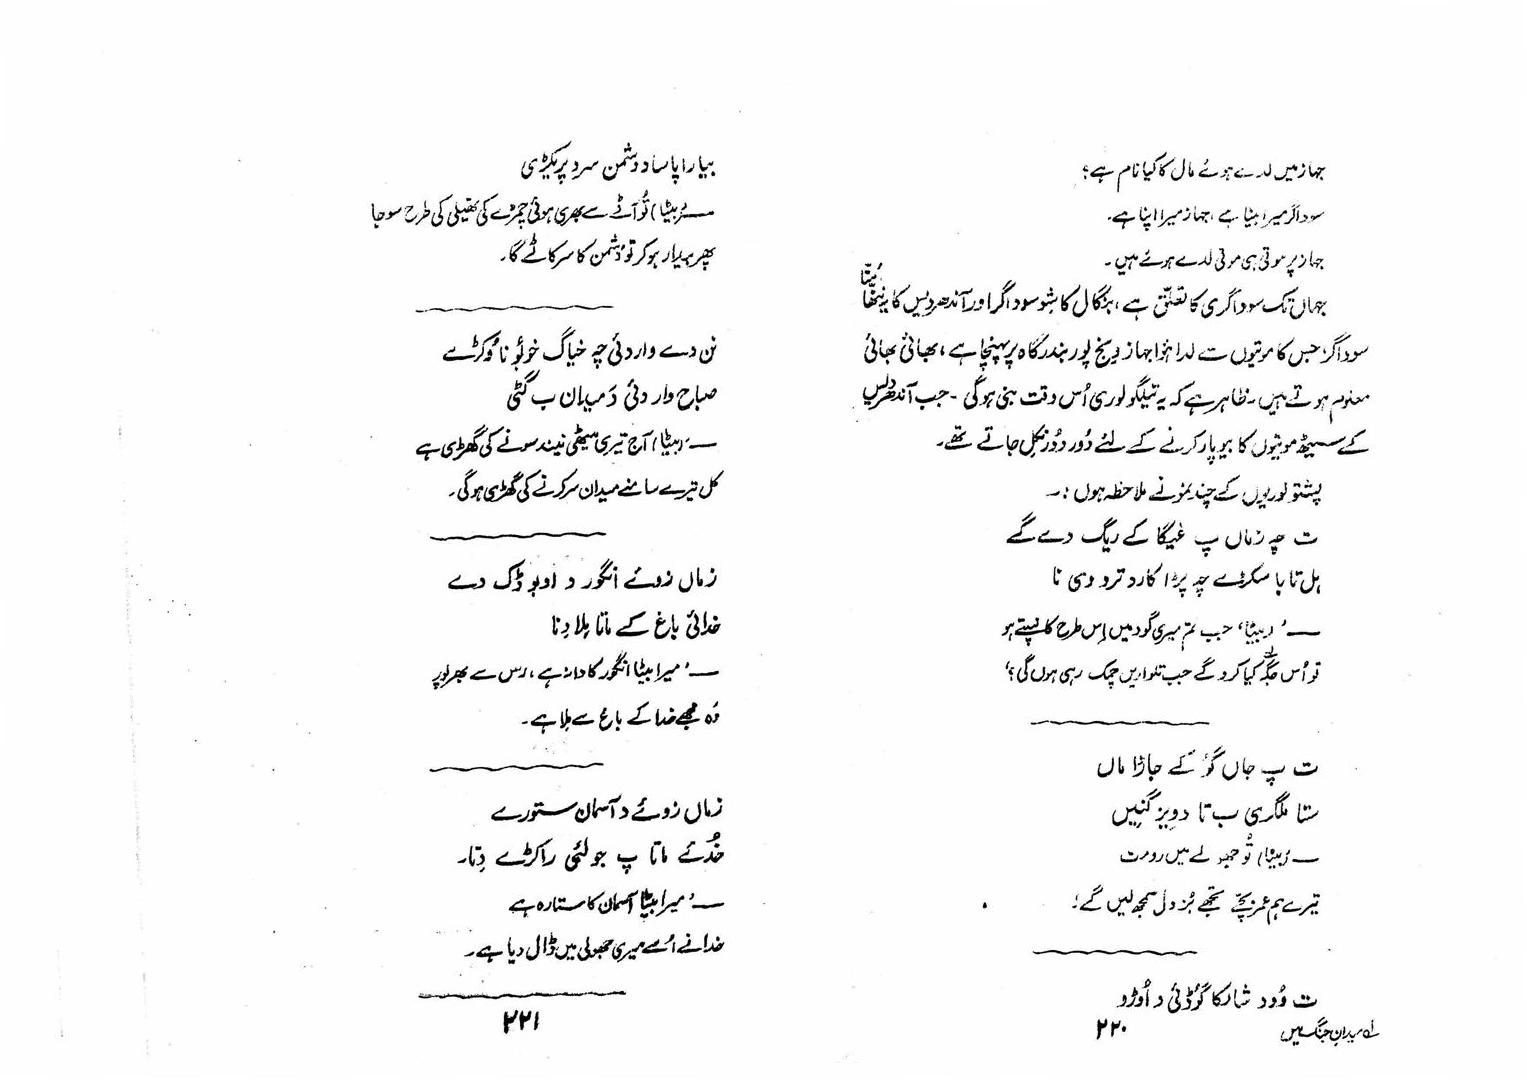 جہاز میں لدے ہوئے مال کا کیا نام ہے؟
سوداگر میرا بیٹا ہے، جہاز میرا اپنا ہے۔
جہاز پر موتی ہی موتی لدے ہوئے ہیں۔
جہاں تک سوداگری کا تعلق ہے، بنگال کا شو سوداگر اور آندھر دیس کا
سوداگر جس کا موتیوں سے لدا ہوا جہاز ویخ پور بندرگاہ پر پہنچا ہے، بھائی بھائی
معلوم ہوتے ہیں۔ ظاہر ہے کہ یہ تیلگو لوری اُس وقت بنی ہوگی۔ جب آندھر دیس
کے سیٹھ موتیوں کا بیوپار کرنے کے لئے دُور دُور نکل جاتے تھے۔
پشتو لوریوں کے چند نمونے ملاحظہ ہوں :۔
ت چہ زماں پ غیگا کے ریگ دے گے
ہل تا با سکڑے چہ پڑا کارد ترد وہی نا
— ’(بیٹا) جب تم میری گود میں اِس طرح کانپتے ہو
تو اُس جگہ لے کیا کرو گے جب تلواریں چمک رہی ہوں گی؟‘
ت پ جاں گو کے جاڑا ماں
ستا ملگری ب تا دویز گنیں
— (بیٹا) تُو جھولے میں رو مت
تیرے ہم عمر بچے تجھے بزدل سمجھ لیں گے!
ت وُود شارکا گوُڈئی د اُوڑو
لے میدانِ جنگ میں
۲۲۰
بیا راپاسا د دشمن سرد پریکڑی
— (بیٹا) تُو آٹے سے بھری ہوئی چمڑے کی تھیلی کی طرح سو جا
پھر بیدار ہو کر تو دُشمن کا سر کاٹے گا۔
نن دے وار دئی چہ خیاگ خوبُو نا وُکڑے
صباح وار دئی دَ میدان ب گٹی
— (بیٹا) آج تیری میٹھی نیند سونے کی گھڑی ہے
کل تیرے سامنے میدان سر کرنے کی گھڑی ہوگی۔
زماں زوئے انگور د اوبو ڈک دے
خدائی باغ کے ماتا پلا دِنا
— ’میرا بیٹا انگور کا دانہ ہے، رس سے بھرپور
وُہ مجھے خدا کے باغ سے ملا ہے۔
زماں زوئے د آسمان ستورے
خُدئے ماتا پ جولئی راکڑے دِتا۔
— ’میرا بیٹا آسمان کا ستارہ ہے
خدا نے اُسے میری جھولی میں ڈال دیا ہے۔
۲۲۱